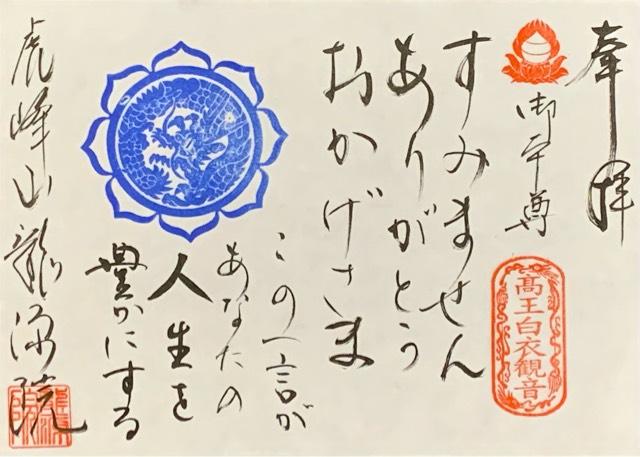 奉拝
御本尊
高王白衣観音
すみません
ありがとう
おかげさま
この一言が
あなたの
人生を
豊かにする
虎峰山龍源院